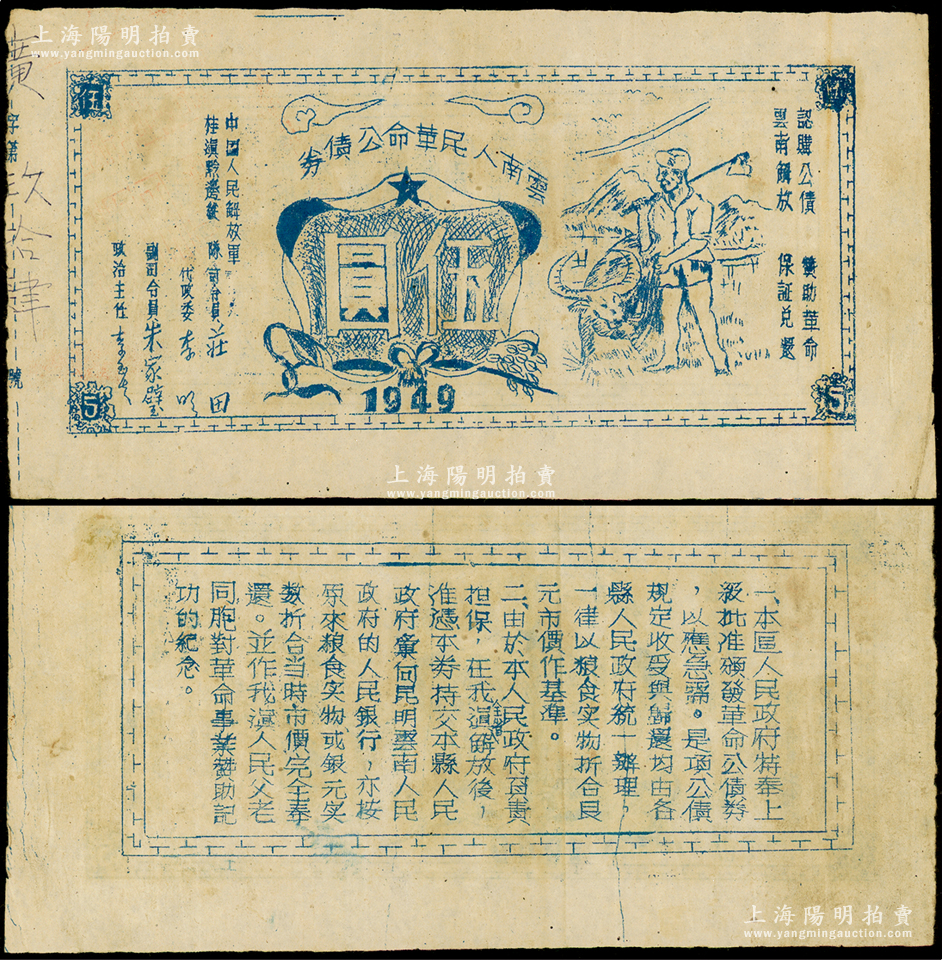 上海陽明拍賣
www.yangmingauction.com
雲南人民革命公債券
認購公債 贊助革命
雲南解放 保証兌還
伍圓
1949
伍
5
5
中國人民解放軍
桂滇黔邊縱隊司令員 莊田
代政委 李明
副司令員 朱家璧
政治主任
字第 玖拾肆 號
上海陽明拍賣
www.yangmingauction.com
一、本區人民政府特奉上
級批准頒發革命公債券
，以應急需。是項公債
規定收受與歸還均由各
縣人民政府統一辦理，
一律以粮食实物折合良
元市價作基準。
二、由於本人民政府負責
担保，在我滇解放後，
准憑本券持交本縣人民
政府彙向昆明雲南人民
政府的人民銀行，亦按
原來粮食实物或銀元实
数折合当時市價完全奉
還。並作我滇人民父老
同胞對革命事業赞助記
功的紀念。
上海陽明拍賣
www.yangmingauction.com